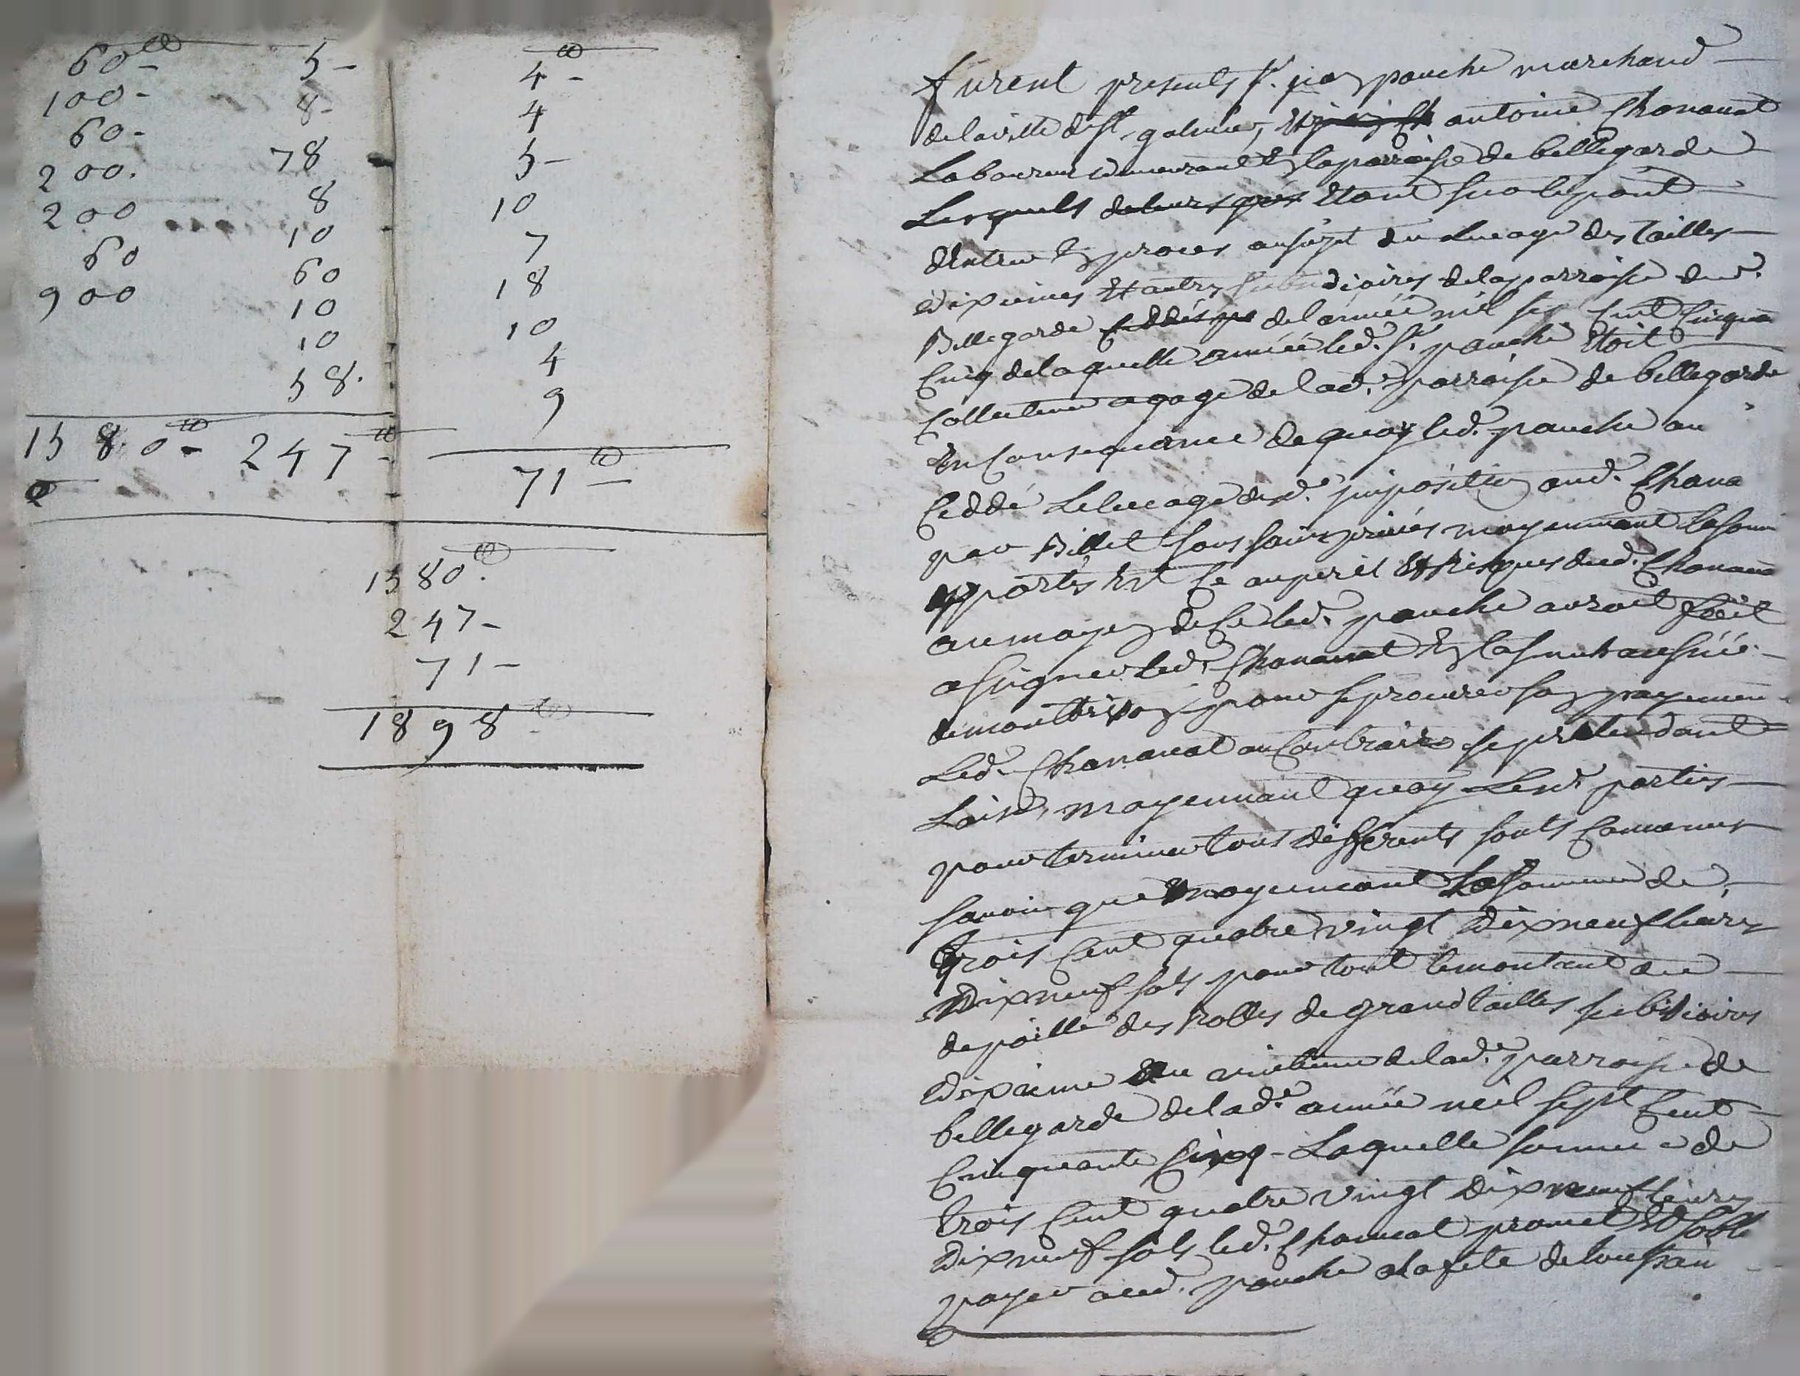 60# - 5 -
100 - 8 -
60 -
200. 78
200 8
60 10
900 60
10
10
58.
1580# - 247# -
4# -
4
5 -
10
7
18
10
4
9
71# -
1580#.
247 -
71 -
1898#
furent presents Sr. pouche marchand
de la ville de St. galmier, Et antoine Chananat
Laboureur demeurant En la parroisse de bellegarde
Lesquels Etant sur le point
d'Entrer En proces au sujet du Luage des Tailles
dixiemes Et autres de la parroisse de
Bellegarde de l'année mil sept Cent Cinquante
Cinq de laquelle année led. Sr. pouche Etoit
Collecteur a gage de lad. parroisse de bellegarde
En Consequance de quoy led. pouche au
Ceddé Le imposition aud. Chana
par Billet sous sains privés moyennant la som
portés Et Ce au peril Et Risques dud. Chanana
au moyen de Ce led. pouche auroit fait
assigner led. Chananat En la
de montbrison pour se procurer son payement
Led. Chananat au Contraire se pretendant
moyennant quoy Lesd. parties
pour terminer tous differents sonts Convenus
savoir que moyennant La somme de
trois Cent quatre vingt Dix neuf livres
Dix neuf sols pour tout le montant du
des Rolles de grand tailles
Dixieme de lad. parroisse de
bellegarde de lad. année mil sept Cent
Cinquante Cinq - Laquelle somme de
trois Cent quatre vingt Dix neuf livres
Dix neuf sols led. Chananat promet Et
payer aud. pouche a la fete de toussain